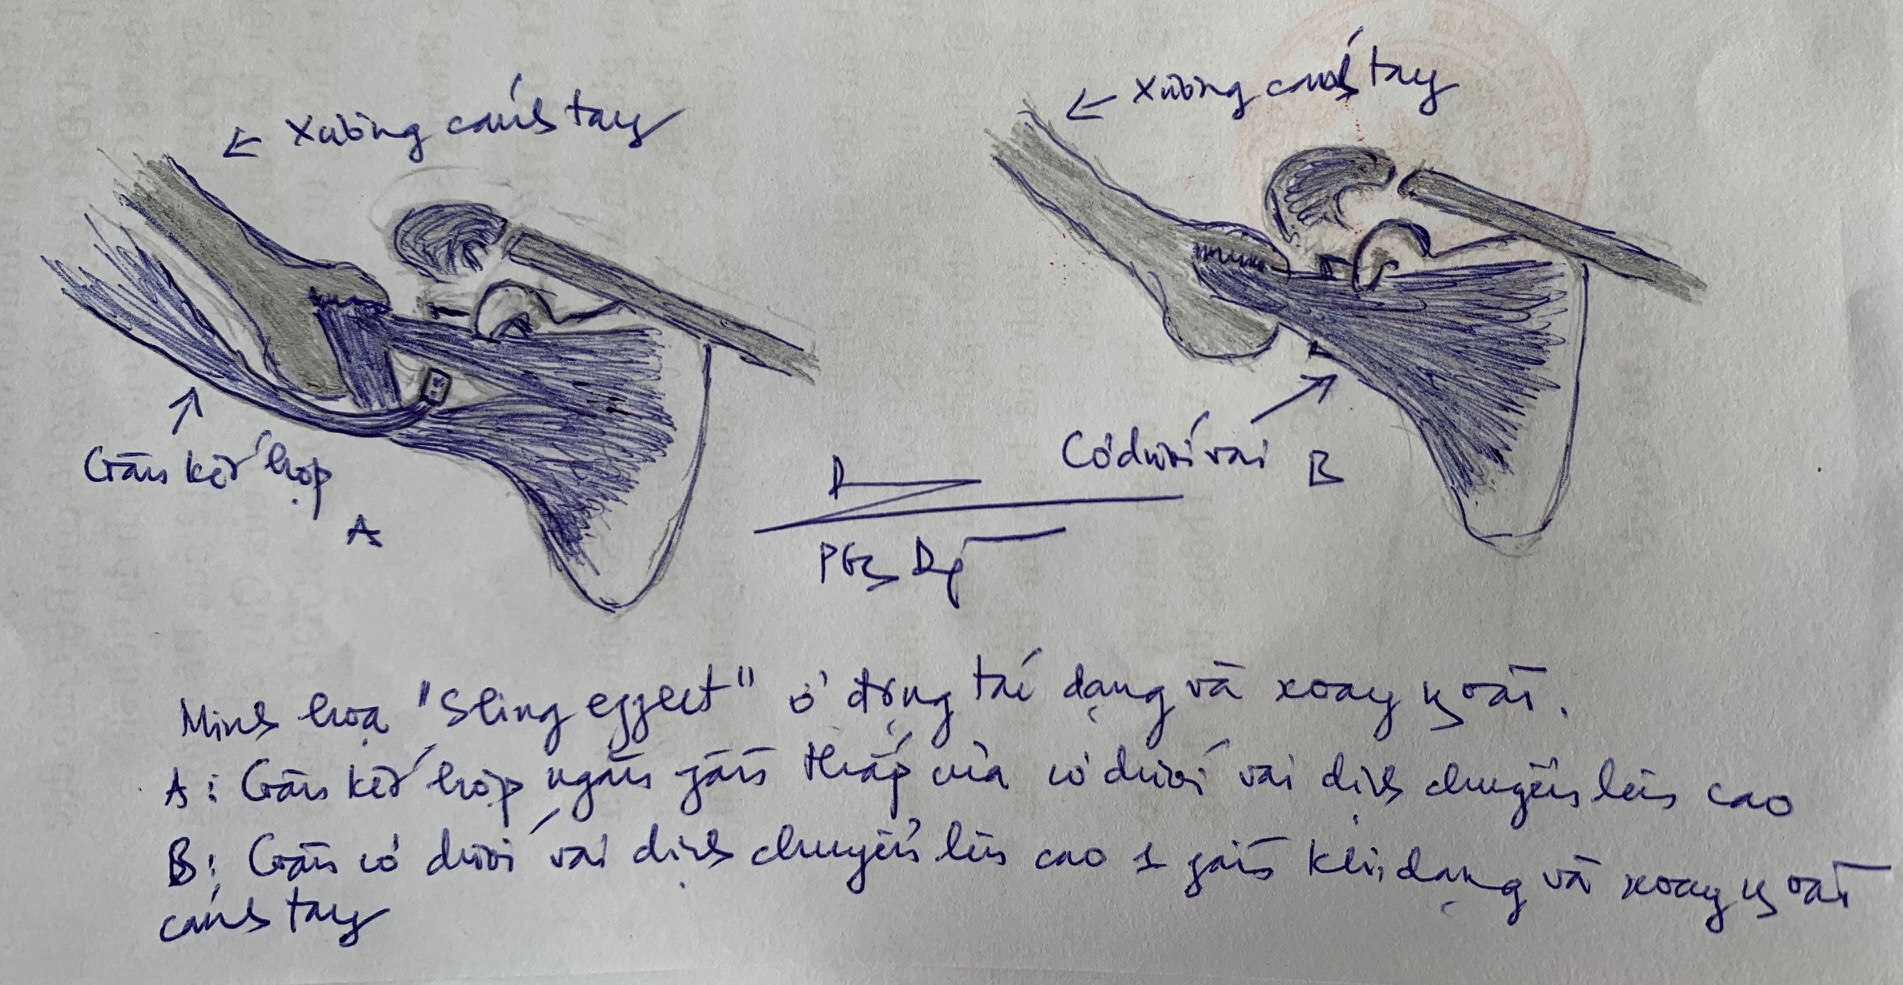 ← Xương cánh tay
← Xương cánh tay
Gân kết hợp
A
Cơ dưới vai B
PGS
Minh họa "Sling effect" ở động tác dạng và xoay ngoài.
A: Gân kết hợp ngăn gân thấp của cơ dưới vai dịch chuyển lên cao
B: Gân cơ dưới vai dịch chuyển lên cao 1 gân khi dạng và xoay ngoài
cánh tay